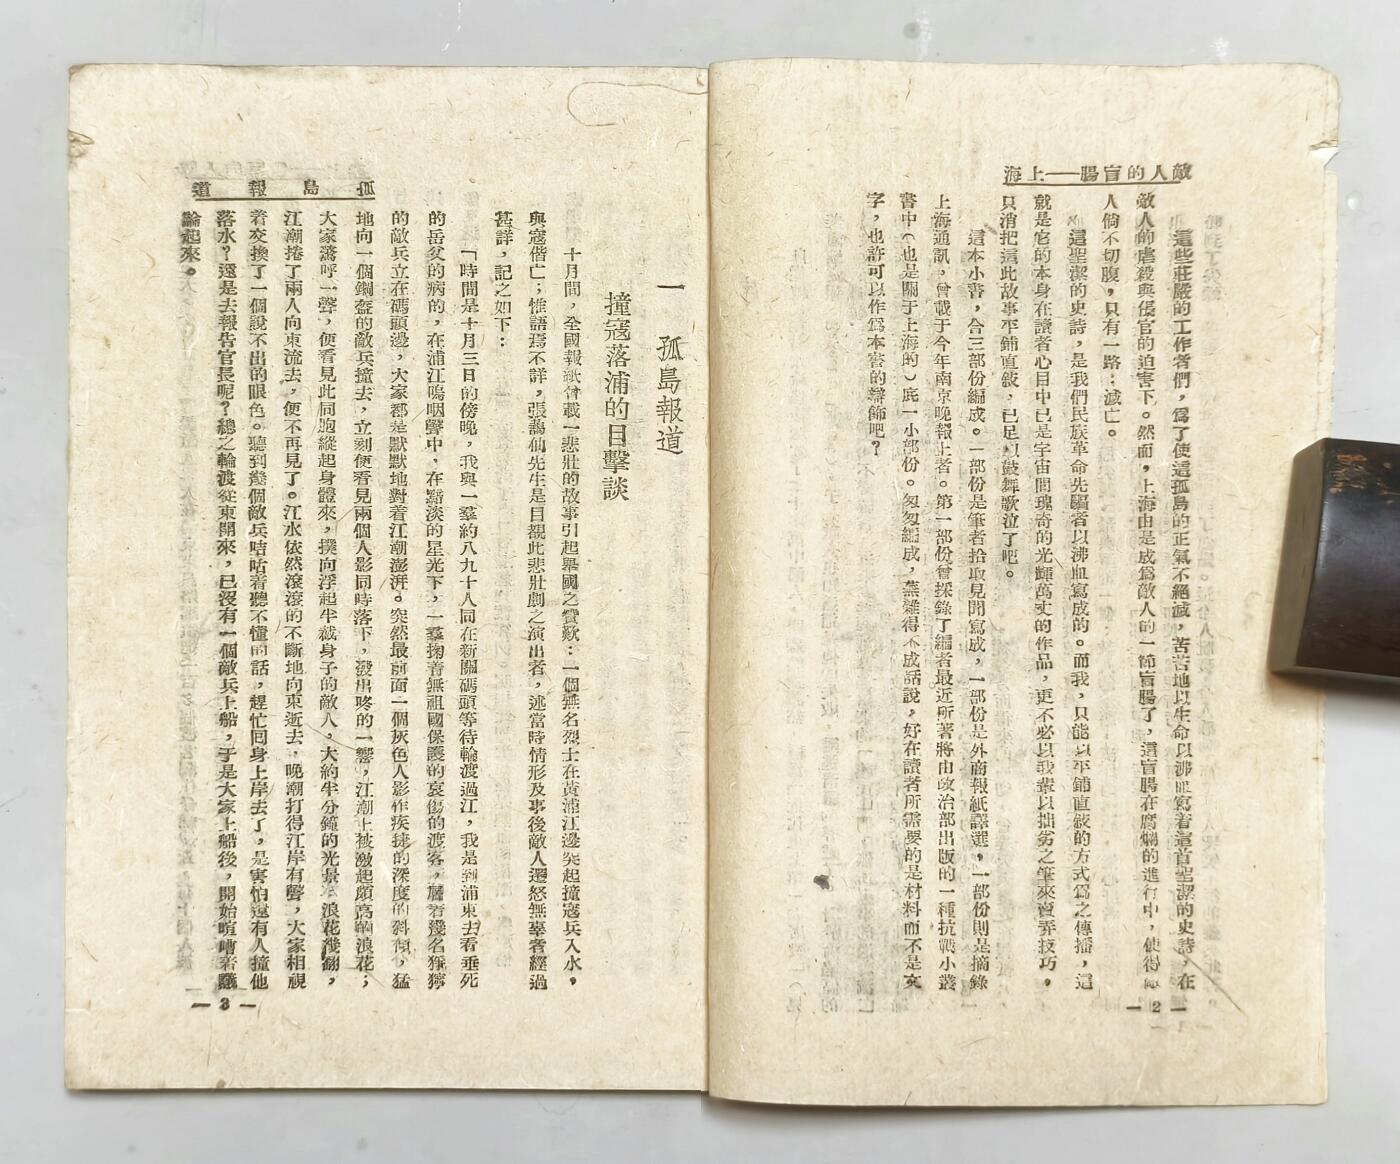 敵人的盲腸——上海
這些莊嚴的工作者們，爲了使這孤島的正氣不絕滅，苦苦地以生命以沸血寫着這首聖潔的史詩，在
敵人的虐殺與倀官的迫害下。然而，上海由是成爲敵人的一節盲腸了，這盲腸在腐爛的進行中，使得敵
人倘不切腹，只有一路：滅亡。
這聖潔的史詩，是我們民族革命先驅者以沸血寫成的。而我，只能以平鋪直敍的方式爲之傳播，這
就是它的本身在讀者心目中已是宇宙間瑰奇的光輝萬丈的作品，更不必以我輩以拙劣之筆來賣弄技巧。
只消把這此故事平鋪直敍，已足以鼓舞歌泣了吧。
這本小書，合三部份編成。一部份是筆者拾取見聞寫成，一部份是外商報紙譯選，一部份則是摘錄
上海通訊，曾載于今年南京晚報上者。第一部份曾採錄了編者最近所著將由政治部出版的一種抗戰小叢
書中（也是關于上海的）底一小部份。匆匆編成，蕪雜得不成話說，好在讀者所需要的是材料而不是文
字，也許可以作爲本書的辯飾吧？
— 2 —
孤島報道
一　孤島報道
撞寇落浦的目擊談
十月間，全國報紙曾載一悲壯的故事引起舉國之贊歎：一個無名烈士在黃浦江邊突起撞寇兵入水，
與寇偕亡；惟語焉不詳，張鶴仙先生是目覩此悲壯劇之演出者，述當時情形及事後敵人遷怒無辜者經過
甚詳，記之如下：
「時間是十月三日的傍晚，我與一羣約八九十人同在新關碼頭等待輪渡過江，我是到浦東去看垂死
的岳父的病的，在浦江嗚咽聲中，在黯淡的星光下，一羣掬着無祖國保護的哀傷的渡客，層着幾名猙獰
的敵兵立在碼頭邊，大家都是默默地對着江潮澎湃。突然最前面一個灰色人影作疾捷的深度的斜傾，猛
地向一個鋼盔的敵兵撞去，立刻便看見兩個人影同時落下，潑出咚的一響，江潮上被激起頗高的浪花；
大家驚呼一聲，便看見此同胞縱起身體來，撲向浮起半截身子的敵人，大約半分鐘的光景，浪花幾翻，
江潮捲了兩人向東流去，便不再見了。江水依然滾滾的不斷地向東逝去，晚潮打得江岸有聲，大家相視
着交換了一個說不出的眼色。聽到幾個敵兵咭咕着聽不懂的話，趕忙回身上岸去了，是害怕還有人撞他
落水？還是去報告官長呢？總之輪渡從東開來，已沒有一個敵兵上船，于是大家上船後，開始喧嘈着議
論起來。
— 3 —